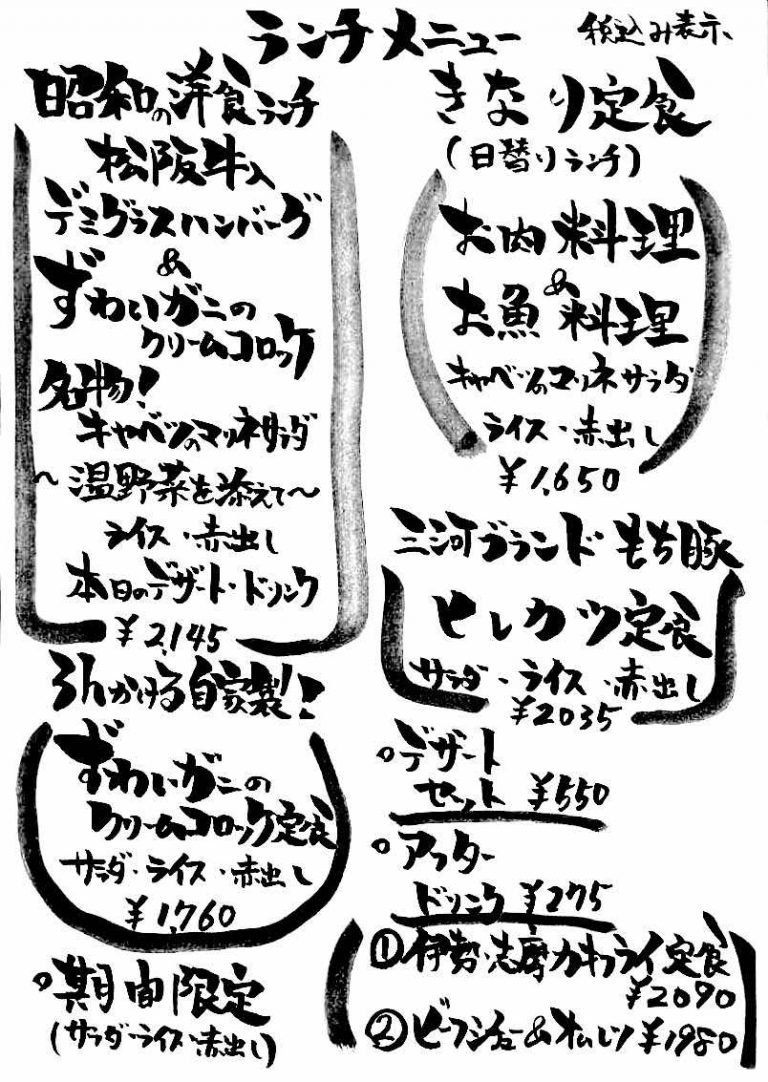 ランチメニュー
税込み表示
昭和の洋食ランチ
松阪牛入
デミグラスハンバーグ
&
ずわいガニの
クリームコロッケ
名物!
キャベツのマリネサラダ
~温野菜を添えて~
ライス・赤出し
本日のデザート・ドリンク
¥2,145
ろんかける自家製!
ずわいガニの
クリームコロッケ定食
サラダ・ライス・赤出し
¥1,760
○期間限定
(サラダ・ライス・赤出し)
きなり定食
(日替りランチ)
お肉料理
&
お魚料理
キャベツのマリネサラダ
ライス・赤出し
¥1,650
三河ブランドもち豚
ヒレカツ定食
サラダ・ライス・赤出し
¥2035
○デザート
セット ¥550
○アフター
ドリンク ¥275
①伊勢・志摩カキフライ定食
¥2090
②ビーフシチュー&オムレツ ¥1980